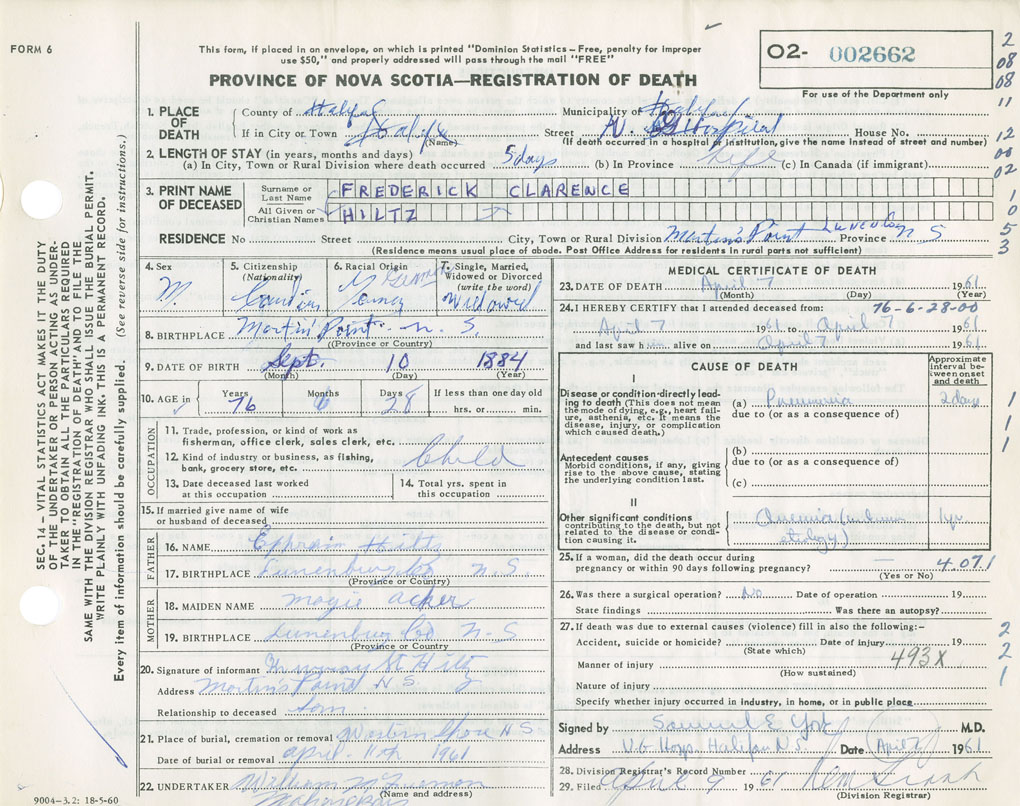 FORM 6
This form, if placed in an envelope, on which is printed "Dominion Statistics – Free, penalty for improper
use $50," and properly addressed will pass through the mail "FREE"
PROVINCE OF NOVA SCOTIA—REGISTRATION OF DEATH
O2- 002662
For use of the Department only
2
08
08
11
12
00
02
1
0
5
3
1
1
1
2
2
1
SEC. 14 – VITAL STATISTICS ACT MAKES IT THE DUTY
OF THE UNDERTAKER OR PERSON ACTING AS UNDER-
TAKER TO OBTAIN ALL THE PARTICULARS REQUIRED
IN THE "REGISTRATION OF DEATH" AND TO FILE THE
SAME WITH THE DIVISION REGISTRAR WHO SHALL ISSUE THE BURIAL PERMIT.
WRITE PLAINLY WITH UNFADING INK. THIS IS A PERMANENT RECORD.
Every item of information should be carefully supplied. (See reverse side for instructions.)
1. PLACE OF DEATH
County of Halifax Municipality of Halifax
If in City or Town Halifax (Name) Street V. G. Hospital House No.
(If death occurred in a hospital or institution, give the name instead of street and number)
2. LENGTH OF STAY (in years, months and days)
(a) In City, Town or Rural Division where death occurred 5 days (b) In Province life (c) In Canada (if immigrant)
3. PRINT NAME OF DECEASED
Surname or Last Name FREDERICK CLARENCE
All Given or Christian Names HILTZ
RESIDENCE No Street City, Town or Rural Division Martin's Point Lunenburg Province N S
(Residence means usual place of abode. Post Office Address for residents in rural parts not sufficient)
4. Sex M.
5. Citizenship (Nationality) Canadian
6. Racial Origin German
7. Single, Married, Widowed or Divorced (write the word) Widowed
8. BIRTHPLACE Martin's Point N. S.
(Province or Country)
9. DATE OF BIRTH Sept. 10 1884
(Month) (Day) (Year)
10. AGE in Years 76 Months 6 Days 28 If less than one day old
hrs. or min.
OCCUPATION
11. Trade, profession, or kind of work as
fisherman, office clerk, sales clerk, etc.
12. Kind of industry or business, as fishing,
bank, grocery store, etc. Child
13. Date deceased last worked
at this occupation
14. Total yrs. spent in
this occupation
15. If married give name of wife
or husband of deceased
FATHER
16. NAME Ephraim Hiltz
17. BIRTHPLACE Lunenburg Co N S
(Province or Country)
MOTHER
18. MAIDEN NAME Magie Acker
19. BIRTHPLACE Lunenburg Co N-S
(Province or Country
20. Signature of informant St Hiltz
Address Martin's Point N.S.
Relationship to deceased Son
21. Place of burial, cremation or removal Western Shore N S
Date of burial or removal April 11th 1961
22. UNDERTAKER William
(Name and address)
Mahone Bay
9004-3.2: 18-5-60
MEDICAL CERTIFICATE OF DEATH
23. DATE OF DEATH April 7 1961
(Month) (Day) (Year)
24. I HEREBY CERTIFY that I attended deceased from: 76-6-28-00
April 7 1961 to April 7 1961
and last saw him alive on April 7 1961
CAUSE OF DEATH
Approximate interval between onset and death
I
Disease or condition directly lead-
ing to death (This does not mean
the mode of dying, e.g., heart fail-
ure, asthenia, etc. It means the
disease, injury, or complication
which caused death.)
(a) Pneumonia 2 days
due to (or as a consequence of)
Antecedent causes
Morbid conditions, if any, giving
rise to the above cause, stating
the underlying condition last.
(b)
due to (or as a consequence of)
(c)
II
Other significant conditions
contributing to the death, but not
related to the disease or condi-
tion causing it.
Anemia (unknown 1 yr
etiology)
25. If a woman, did the death occur during
pregnancy or within 90 days following pregnancy? — 4.071
(Yes or No)
26. Was there a surgical operation? No Date of operation 19
State findings Was there an autopsy?
27. If death was due to external causes (violence) fill in also the following:–
Accident, suicide or homicide? Date of injury 19
(State which)
Manner of injury 493X
(How sustained)
Nature of injury
Specify whether injury occurred in industry, in home, or in public place
Signed by Samuel E York M.D.
Address V.G Hosp. Halifax N.S. Date April 7 1961
28. Division Registrar's Record Number
29. Filed April 9 1961
(Division Registrar)